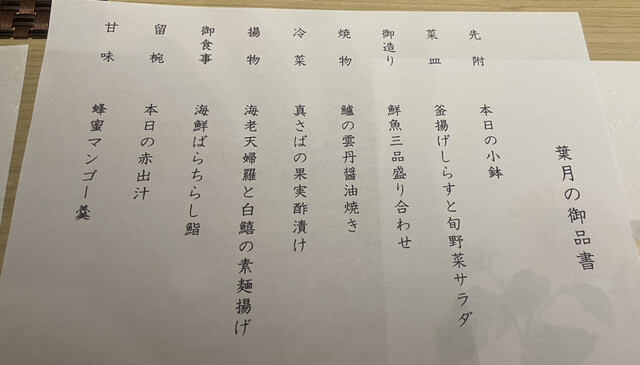 葉月の御品書
先附 本日の小鉢
菜皿 釜揚げしらすと旬野菜サラダ
御造り 鮮魚三品盛り合わせ
焼物 鱸の雲丹醤油焼き
冷菜 真さばの果実酢漬け
揚物 海老天婦羅と白鱚の素麺揚げ
御食事 海鮮ばらちらし鮨
留椀 本日の赤出汁
甘味 蜂蜜マンゴー羹